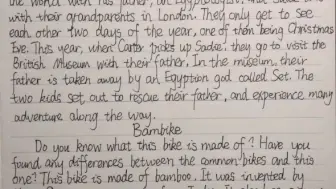 the world with his father, an Egyptologist, and Sadie live
with their grandparents in London. They only get to see
each other two days of the year, one of them being Christmas
Eve. This year, when Carter picks up Sadie, they go to visit the
British Museum with their father. In the museum, their
father is taken away by an Egyptian god called Set. The
two kids set out to rescue their father, and experience many
adventure along the way.
Bambike
Do you know what this bike is made of? Have you
found any differences between the common bikes and this
one? This bike is made of bamboo. It was invented by